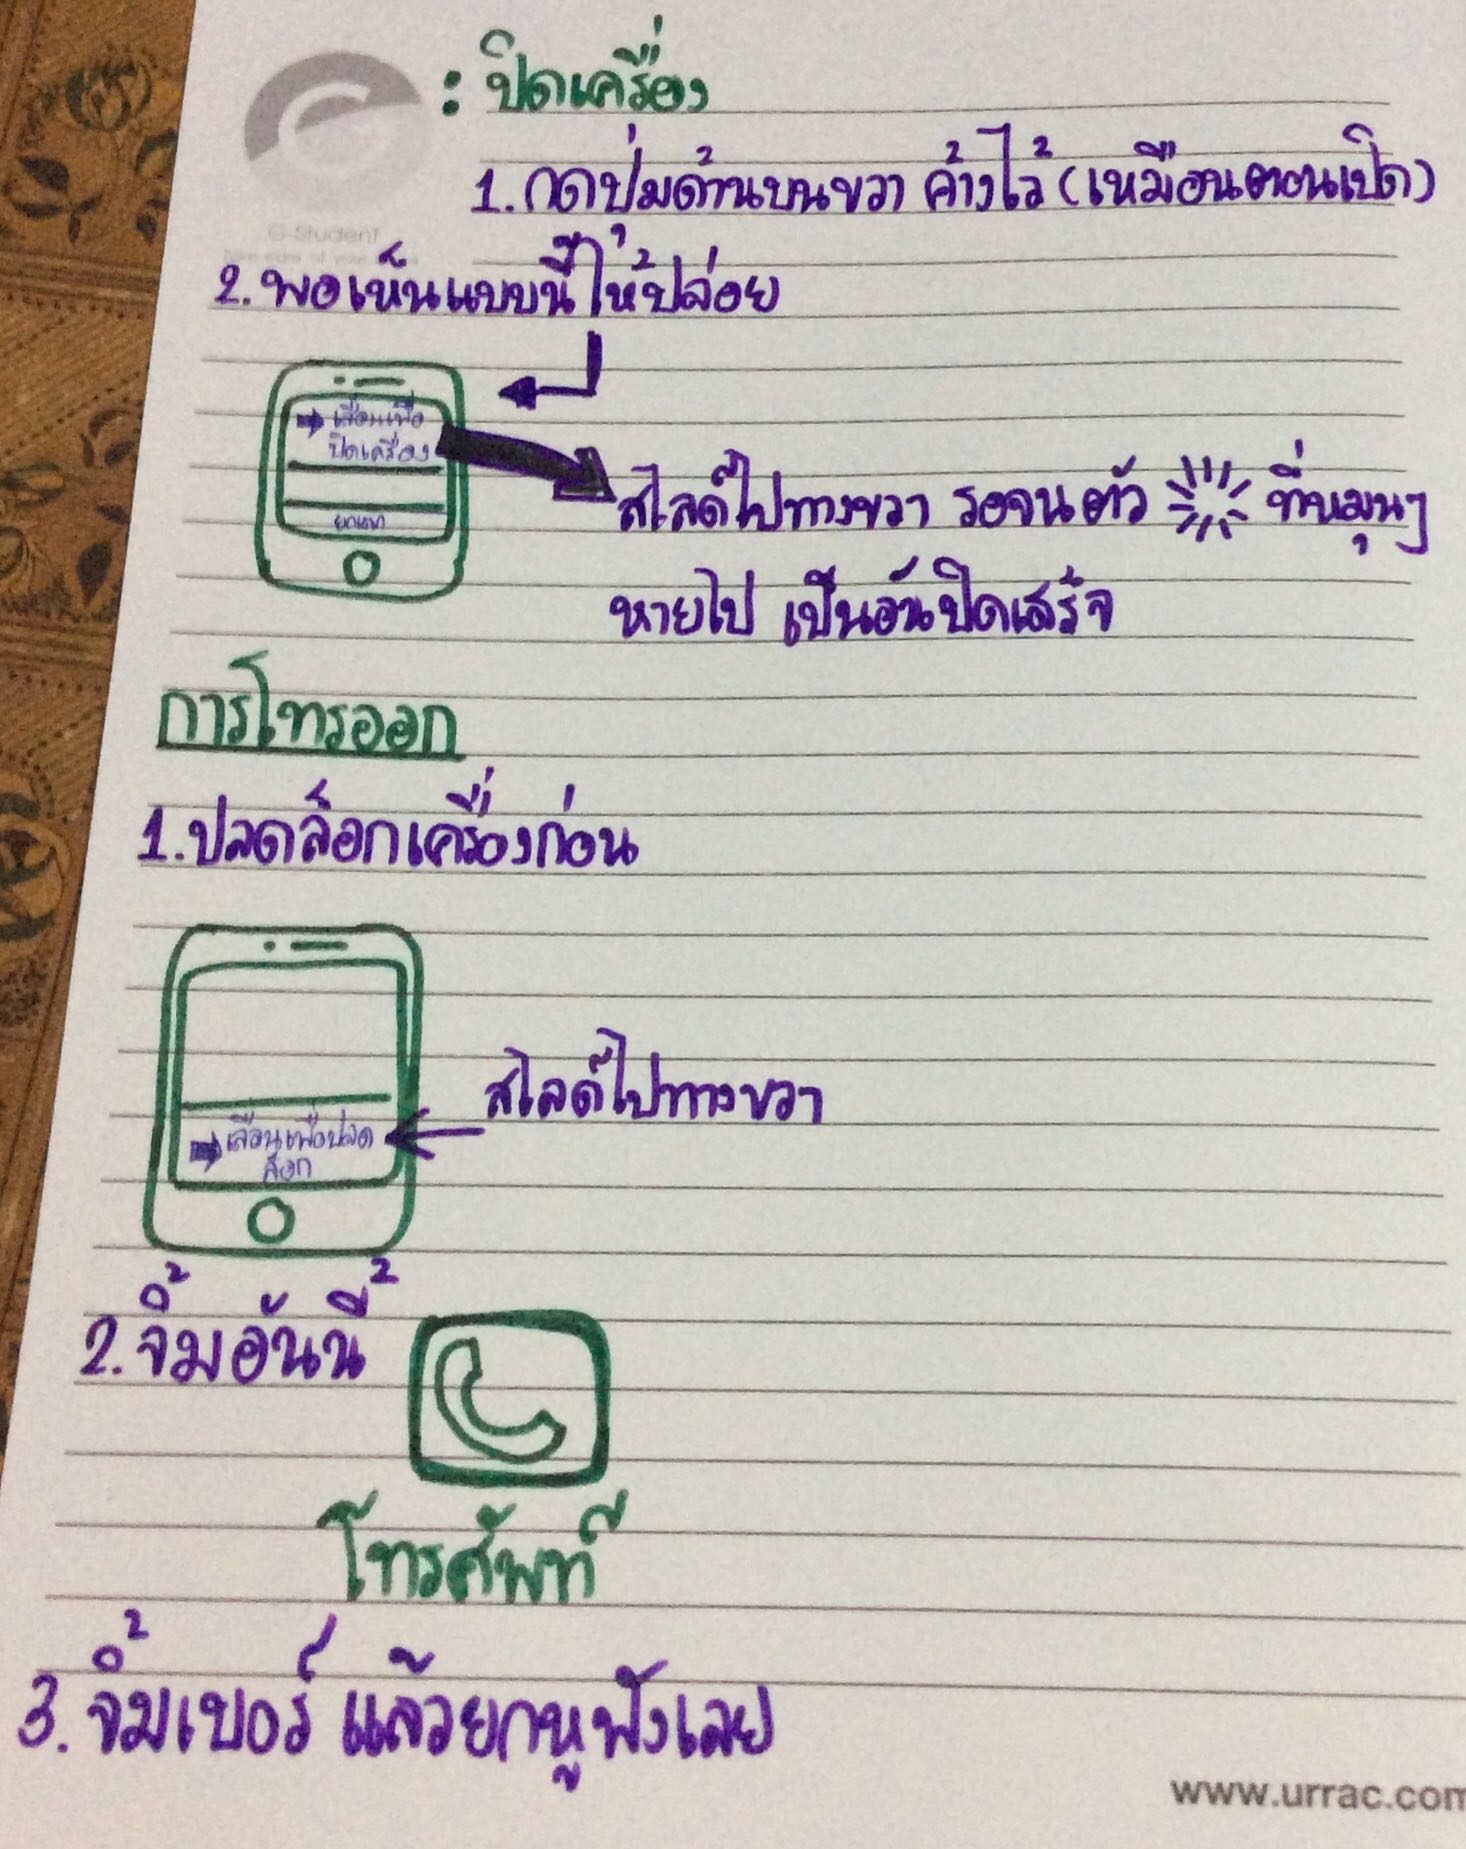 : ปิดเครื่อง
1. กดปุ่มด้านบนขวา ค้างไว้ (เหมือนตอนเปิด)
G-Student
2. พอเห็นแบบนี้ให้ปล่อย
เลื่อนเพื่อ
ปิดเครื่อง
ยกเลิก
สไลด์ไปทางขวา รอจนตัว ที่หมุนๆ
หายไป เป็นอันปิดเสร็จ
การโทรออก
1. ปลดล็อกเครื่องก่อน
สไลด์ไปทางขวา
เลื่อนเพื่อปลด
ล็อก
2. จิ้มอันนี้
โทรศัพท์
3. จิ้มเบอร์ แล้วยกหูฟังเลย
www.urrac.com